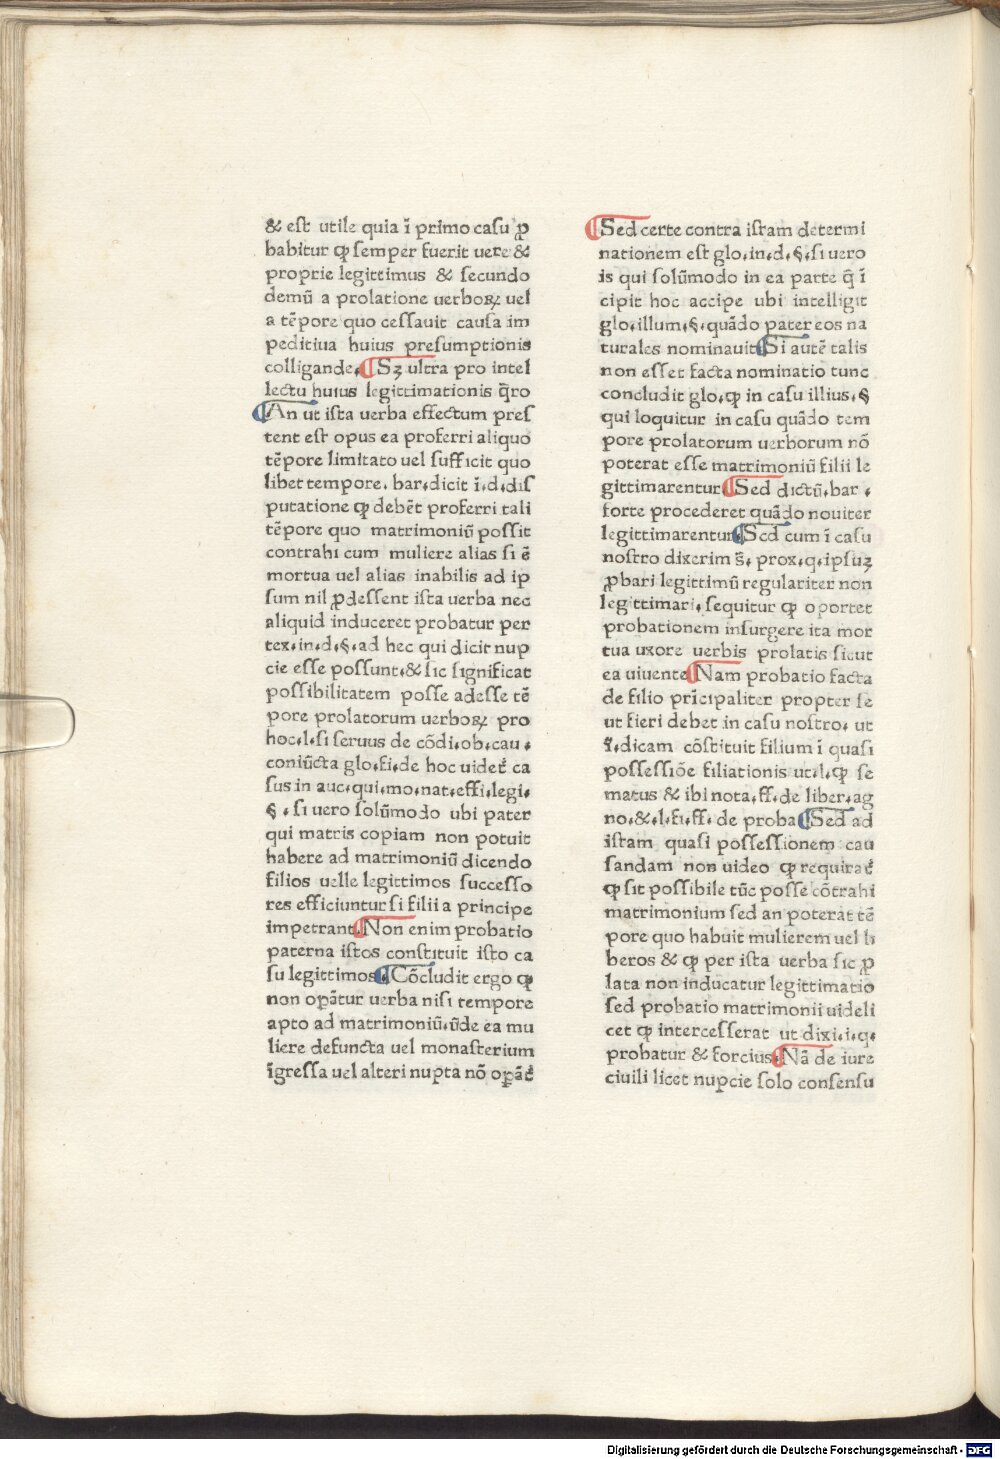 & est utile quia ī primo casu ꝓ
babitur ꝙ semper fuerit uere &
proprie legittimus & secundo
demū a prolatione uerboꝝ uel
a tēpore quo cessauit causa im
peditiua huius presumptionis
colligande. ¶ Sꝫ ultra pro intel
lectu huius legittimationis q̄ro
¶ An ut ista uerba effectum pres
tent est opus ea proferri aliquo
tēpore limitato uel sufficit quo
libet tempore. bar. dicit ī. d. dis
putatione ꝙ debēt proferri tali
tēpore quo matrimoniū possit
contrahi cum muliere alias si ē
mortua uel alias inabilis ad ip
sum nil ꝓdessent ista uerba nec
aliquid induceret probatur per
tex. in. d. §. ad hec qui dicit nup
cie esse possunt. & sic significat
possibilitatem posse adesse tē
pore prolatorum uerboꝝ pro
hoc. l. si seruus de cōdi. ob. cau.
coniūcta glo. fi. de hoc uidet᷑ ca
sus in auc. qui. mo. nat. effi. legi.
§. si uero solūmodo ubi pater
qui matris copiam non potuit
habere ad matrimoniū dicendo
filios uelle legittimos successo
res efficiuntur si filii a principe
impetrant. ¶ Non enim probatio
paterna istos constituit isto ca
su legittimos. ¶ Cōcludit ergo ꝙ
non opātur uerba nisi tempore
apto ad matrimoniū. ūde ea mu
liere defuncta uel monasterium
īgressa uel alteri nupta nō opāt᷑
¶ Sed certe contra istam determi
nationem est glo. in. d. §. si uero
is qui solūmodo in ea parte q̄ ī
cipit hoc accipe ubi intelligit
glo. illum. §. quādo pater eos na
turales nominauit ¶ Si autē talis
non esset facta nominatio tunc
concludit glo. ꝙ in casu illius. §
qui loquitur in casu quādo tem
pore prolatorum uerborum nō
poterat esse matrimoniū filii le
gittimarentur. ¶ Sed dictū. bar.
forte procederet quādo nouiter
legittimarentur ¶ Sed cum ī casu
nostro dixerim s̄. prox. q. ipsuꝫ
ꝓbari legittimū regulariter non
legittimari. sequitur ꝙ oportet
probationem insurgere ita mor
tua uxore uerbis prolatis sicut
ea uiuente ¶ Nam probatio facta
de filio prīcipaliter propter se
ut fieri debet in casu nostro. ut
ī. dicam cōstituit filium ī quasi
possessiōe filiationis ut. l. ꝙ se
matus & ibi nota. ff. de liber. ag
no. &. l. fi. ff. de proba ¶ Sed ad
istam quasi possessionem cau
sandam non uideo ꝙ requirat᷑
ꝙ sit possibile tūc posse cōtrahi
matrimonium sed an poterat tē
pore quo habuit mulierem uel li
beros & ꝙ per ista uerba sic ꝓ
lata non inducatur legittimatio
sed probatio matrimonii uideli
cet ꝙ intercesserat ut dixi. i. q.
probatur & forcius. ¶ Nā de iure
ciuili licet nupcie solo consensu
Digitalisierung gefördert durch die Deutsche Forschungsgemeinschaft - DFG